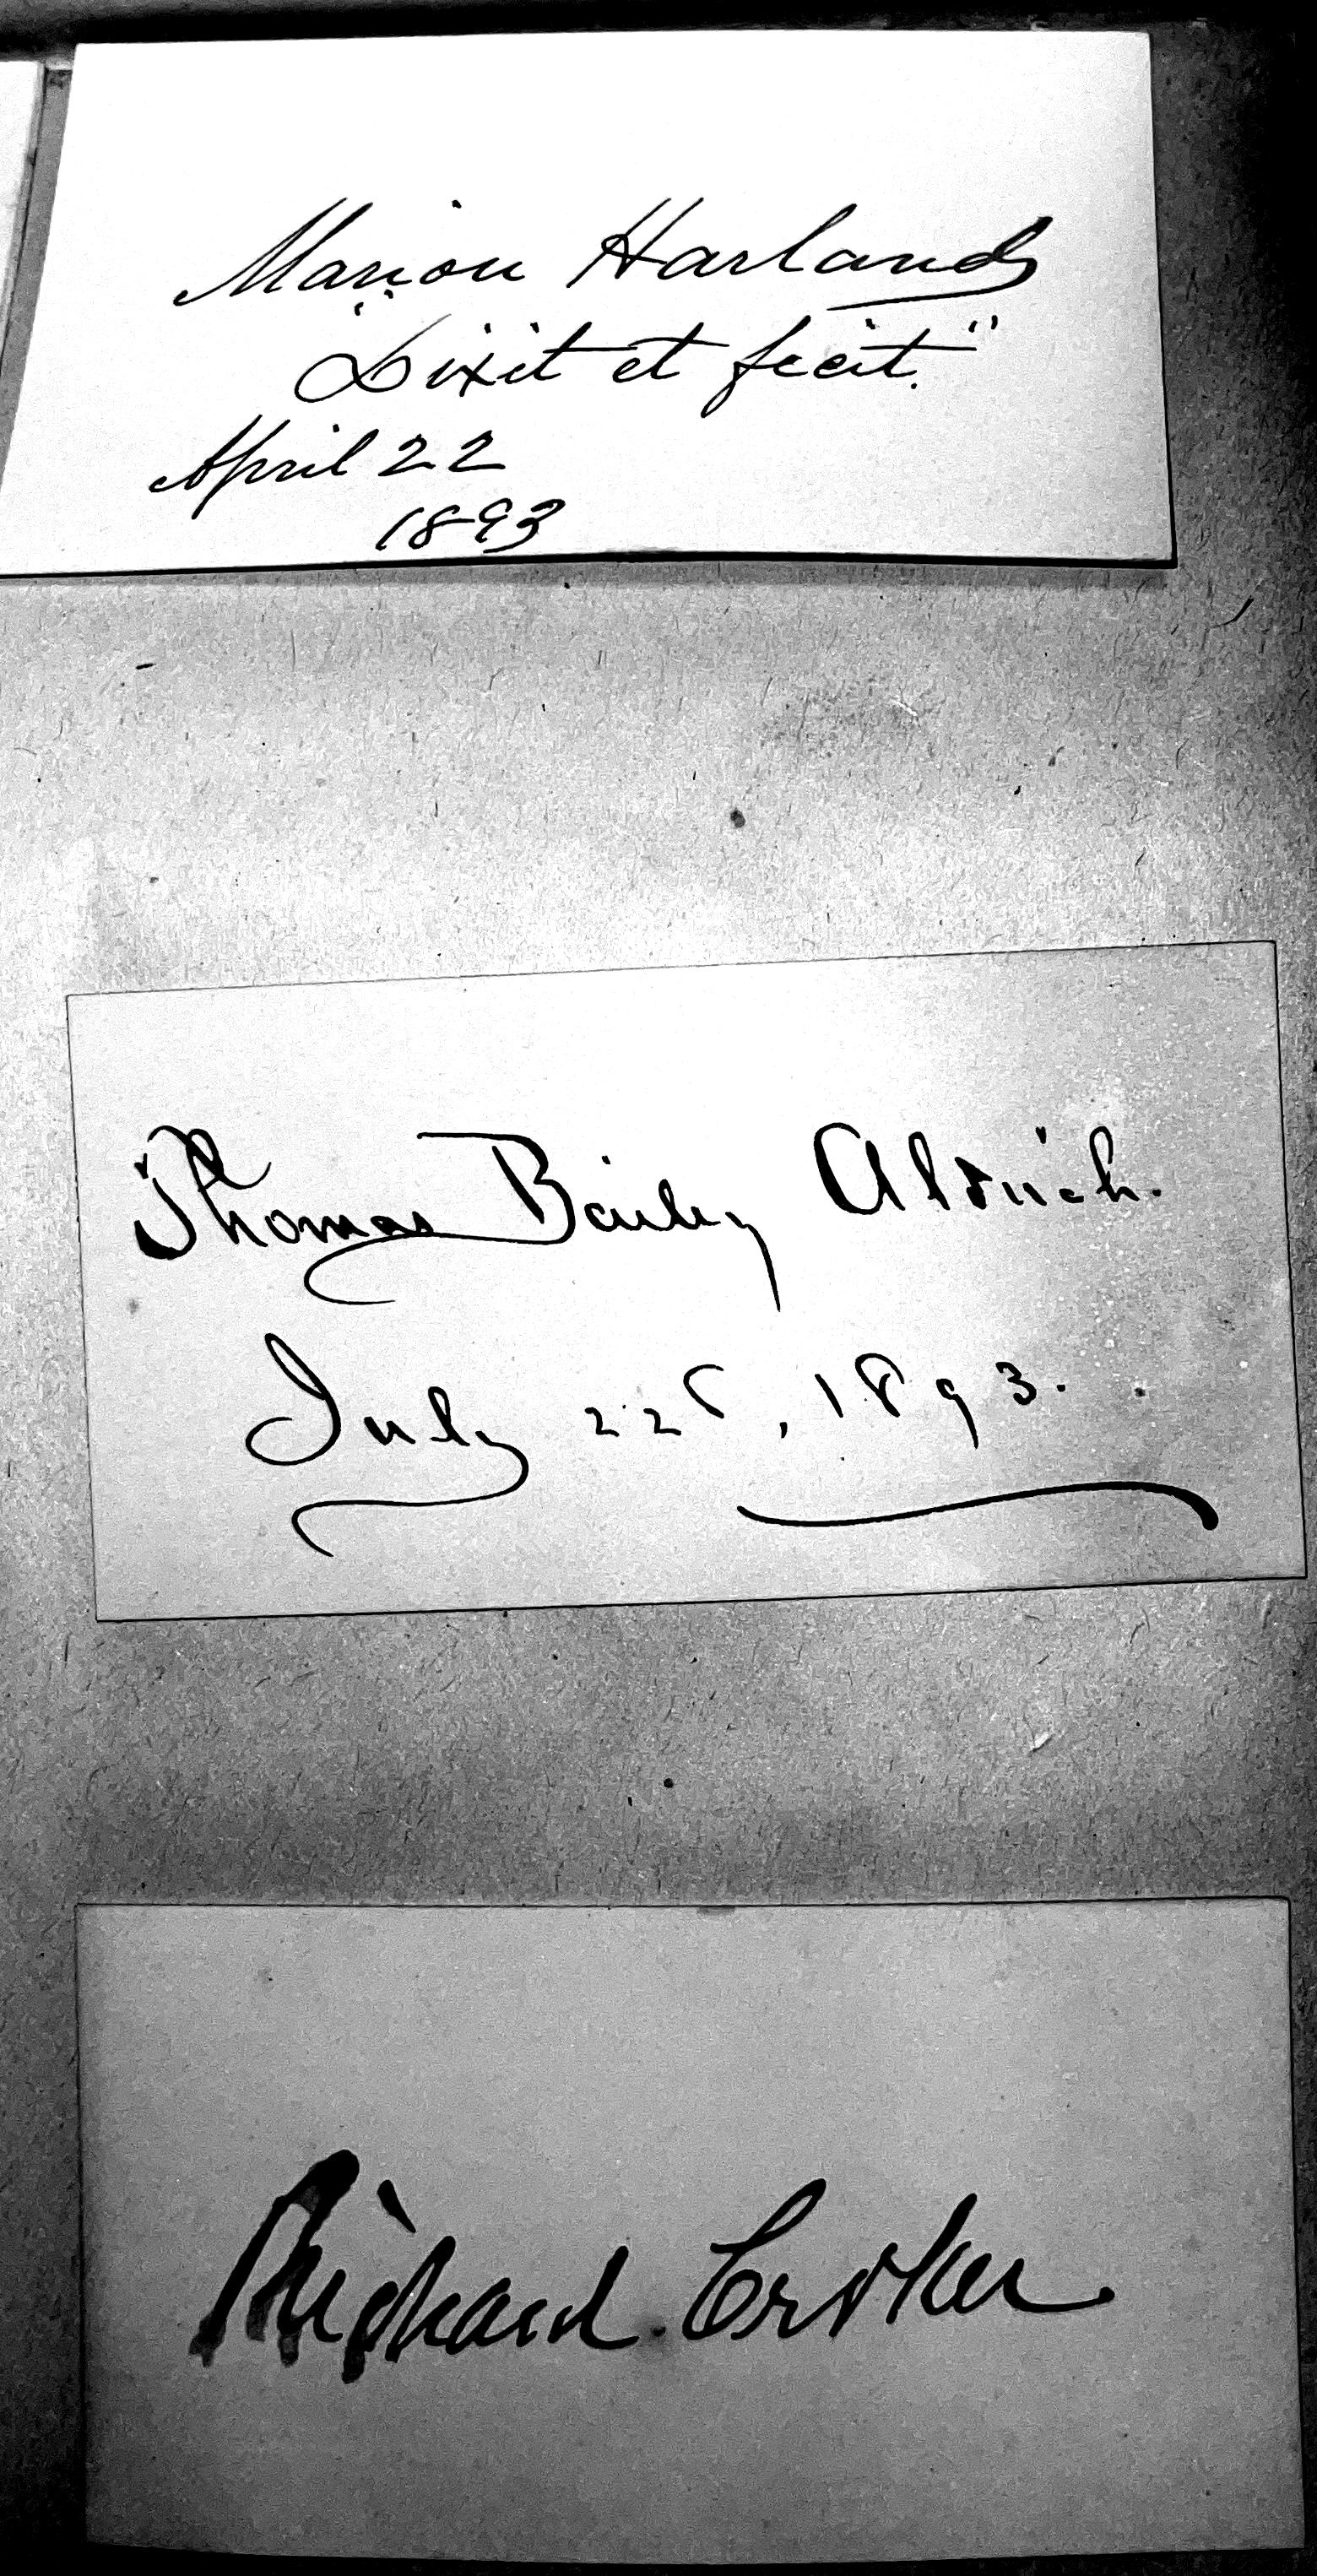 Marion Harland
"Dixit et fecit."
April 22
1893
Thomas Bailey Aldrich.
July 1893.
Richard Croker